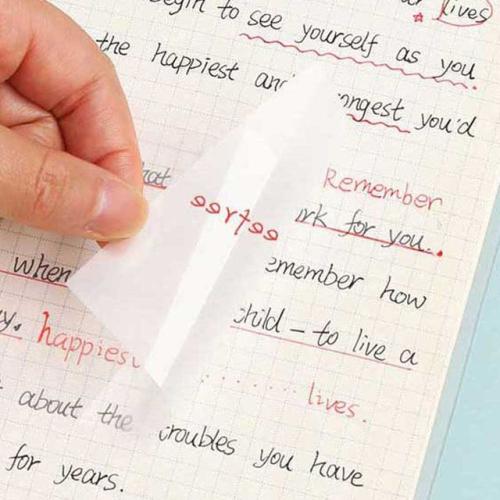 begin to see yourself as you
lives
the happiest and ongest you'd
hat Remember
ork for you.
when emember how
y. happies child – to live a
lives.
about the troubles you have
for years.